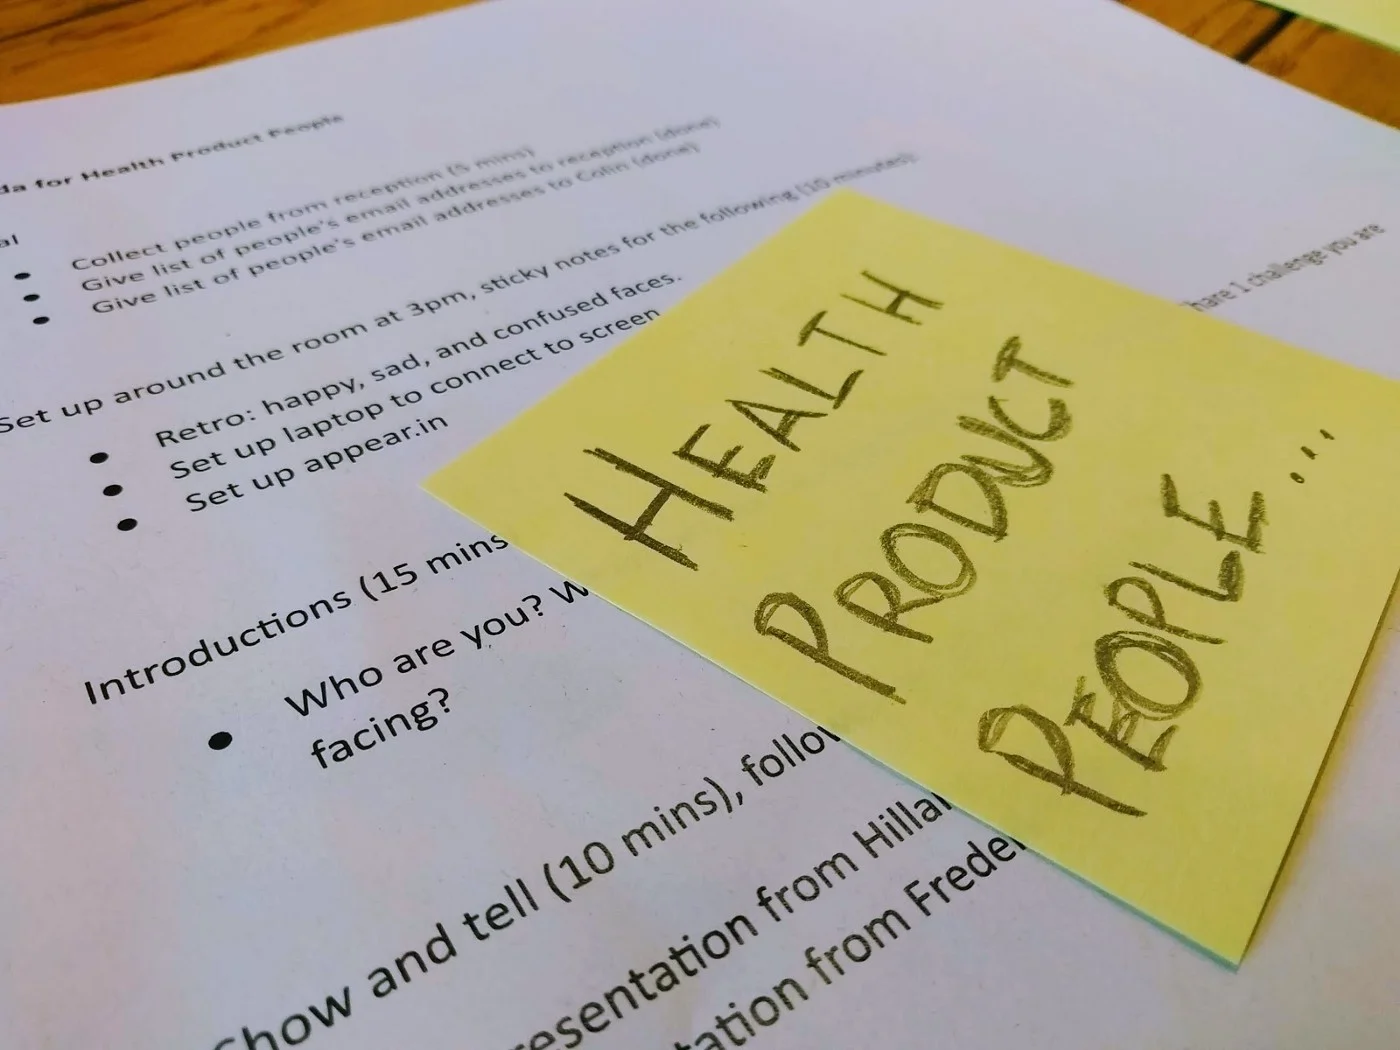 for Health Product People
Collect people from reception (5 mins)
Give list of people's email addresses to reception (done)
Give list of people's email addresses to Colin (done)
Set up around the room at 3pm, sticky notes for the following (10 minutes):
Retro: happy, sad, and confused faces.
Set up laptop to connect to screen
Set up appear.in
Introductions (15 mins
Who are you? 1 challenge you are
facing?
Show and tell (10 mins),
from
from
HEALTH
PRODUCT
PEOPLE...